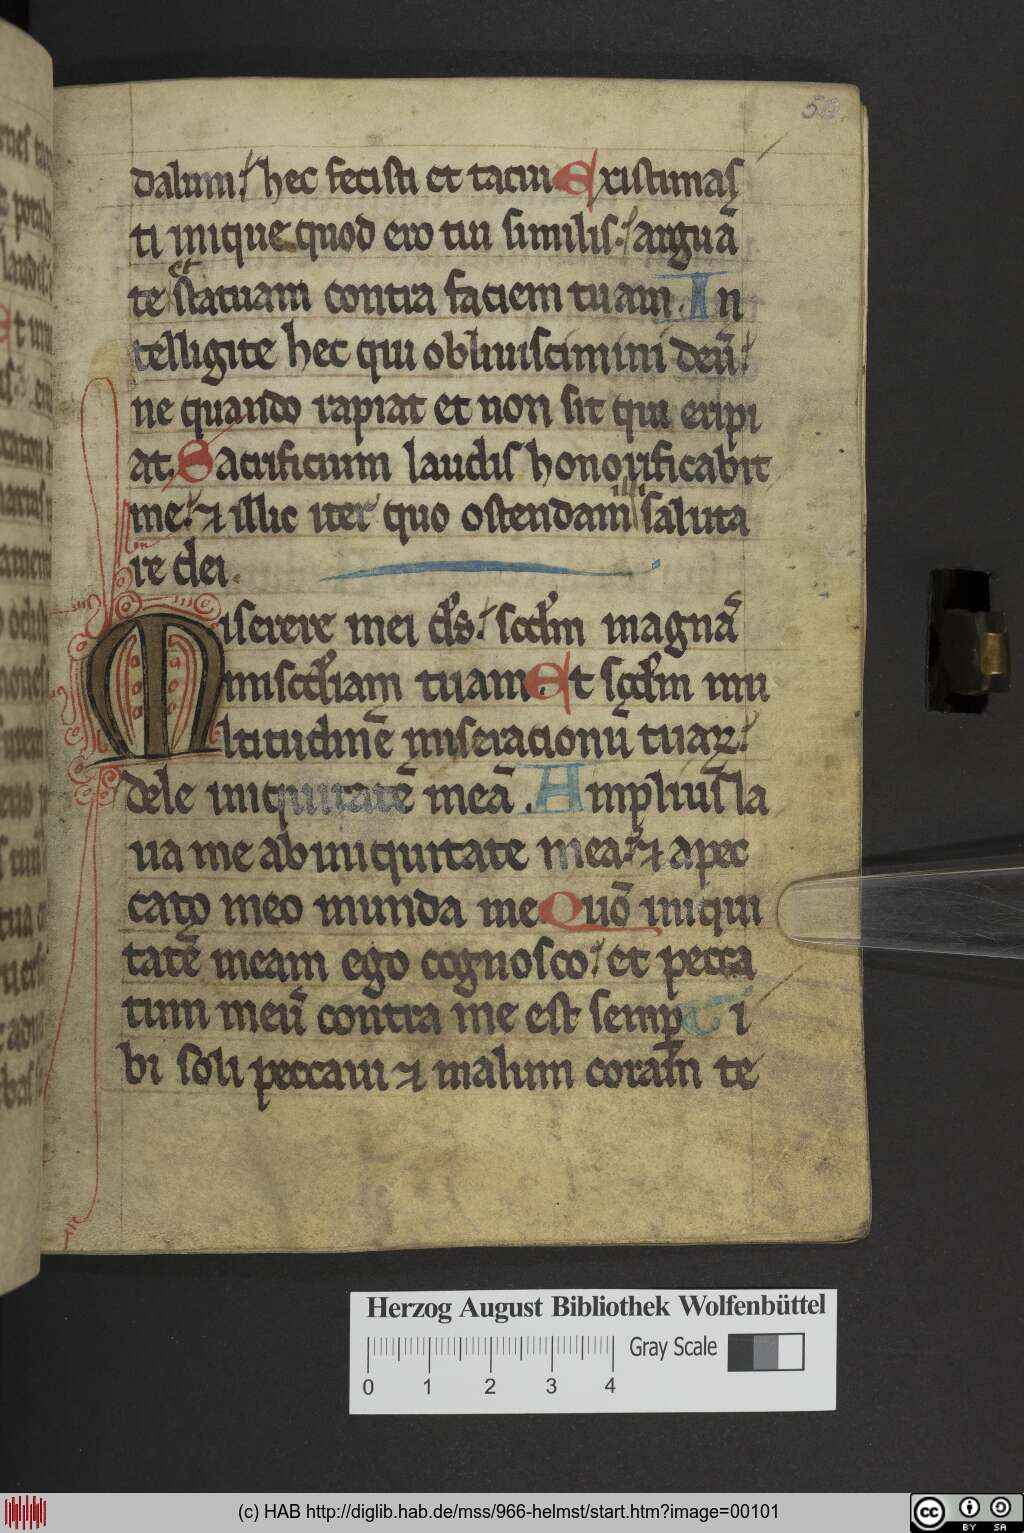 52.
dalum. hec fecisti et tacui Existimas
ti inique quod ero tui similis. arguā
et
te statuam contra faciem tuam. In
telligite hec qui obliuiscimini deū.
ne quando rapiat et non sit qui eripi
at. Sacrificium laudis honorificabit
illi
me. ⁊ illic iter quo ostendam saluta
re dei.
Miserere mei ds̄. scd̄m magnā
miscd̄iam tuam. Et scd̄m mu
ltitudinē miseracionū tuaꝝ.
dele iniquitatē meā. Amplius la
ua me ab iniquitate mea. ⁊ a pec
cato meo munda me Quō iniqui
tatē meam ego cognosco. et pecca
tum meū contra me est semꝑ Ti
bi soli peccaui ⁊ malum coram te
Herzog August Bibliothek Wolfenbüttel
Gray Scale
0 1 2 3 4
(c) HAB http://diglib.hab.de/mss/966-helmst/start.htm?image=00101
cc BY SA